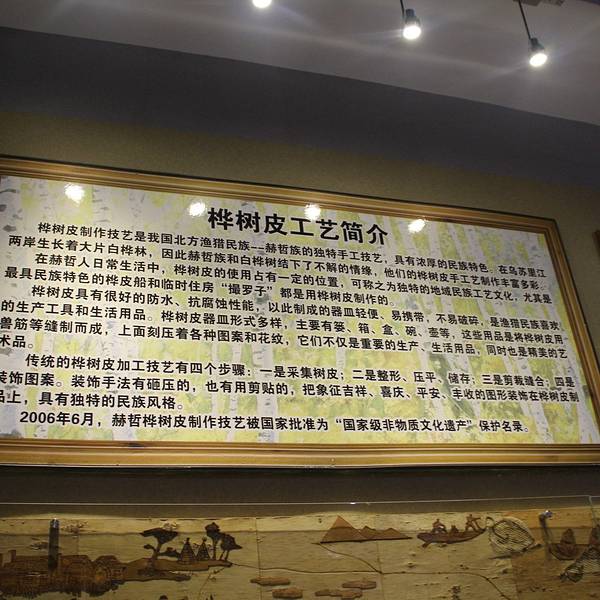 桦树皮工艺简介
桦树皮制作技艺是我国北方渔猎民族--赫哲族的独特手工技艺，具有浓厚的民族特色。在乌苏里江
两岸生长着大片白桦林，因此赫哲族和白桦树结下了不解的情缘，他们的桦树皮手工艺制作丰富多彩。
在赫哲人日常生活中，桦树皮的使用占有一定的位置，可称之为独特的地域民族工艺文化，尤其是
最具民族特色的桦皮船和临时住房“撮罗子”都是用桦树皮制作的。
桦树皮具有很好的防水、抗腐蚀性能，以此制成的器皿轻便、易携带，不易破碎，是渔猎民族喜欢
的生产工具和生活用品。桦树皮器皿形式多样，主要有篓、箱、盒、碗、壶等，这些用品是将桦树皮用
兽筋等缝制而成，上面刻压着各种图案和花纹，它们不仅是重要的生产、生活用品，同时也是精美的艺
术品。
传统的桦树皮加工技艺有四个步骤：一是采集树皮；二是整形、压平、储存；三是剪裁缝合；四是
装饰图案。装饰手法有砸压的，也有用剪贴的，把象征吉祥、喜庆、平安、丰收的图形装饰在桦树皮制
品上，具有独特的民族风格。
2006年6月，赫哲桦树皮制作技艺被国家批准为“国家级非物质文化遗产”保护名录。